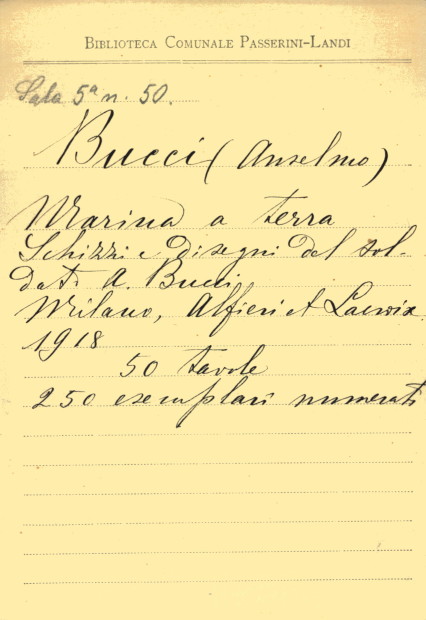 BIBLIOTECA COMUNALE PASSERINI-LANDI
Sala 5ª n. 50.
Bucci (Anselmo)
Marina a terra
Schizzi e disegni del sol-
dato A. Bucci
Milano, Alfieri et Lacroix
1918
50 tavole
250 esemplari numerati